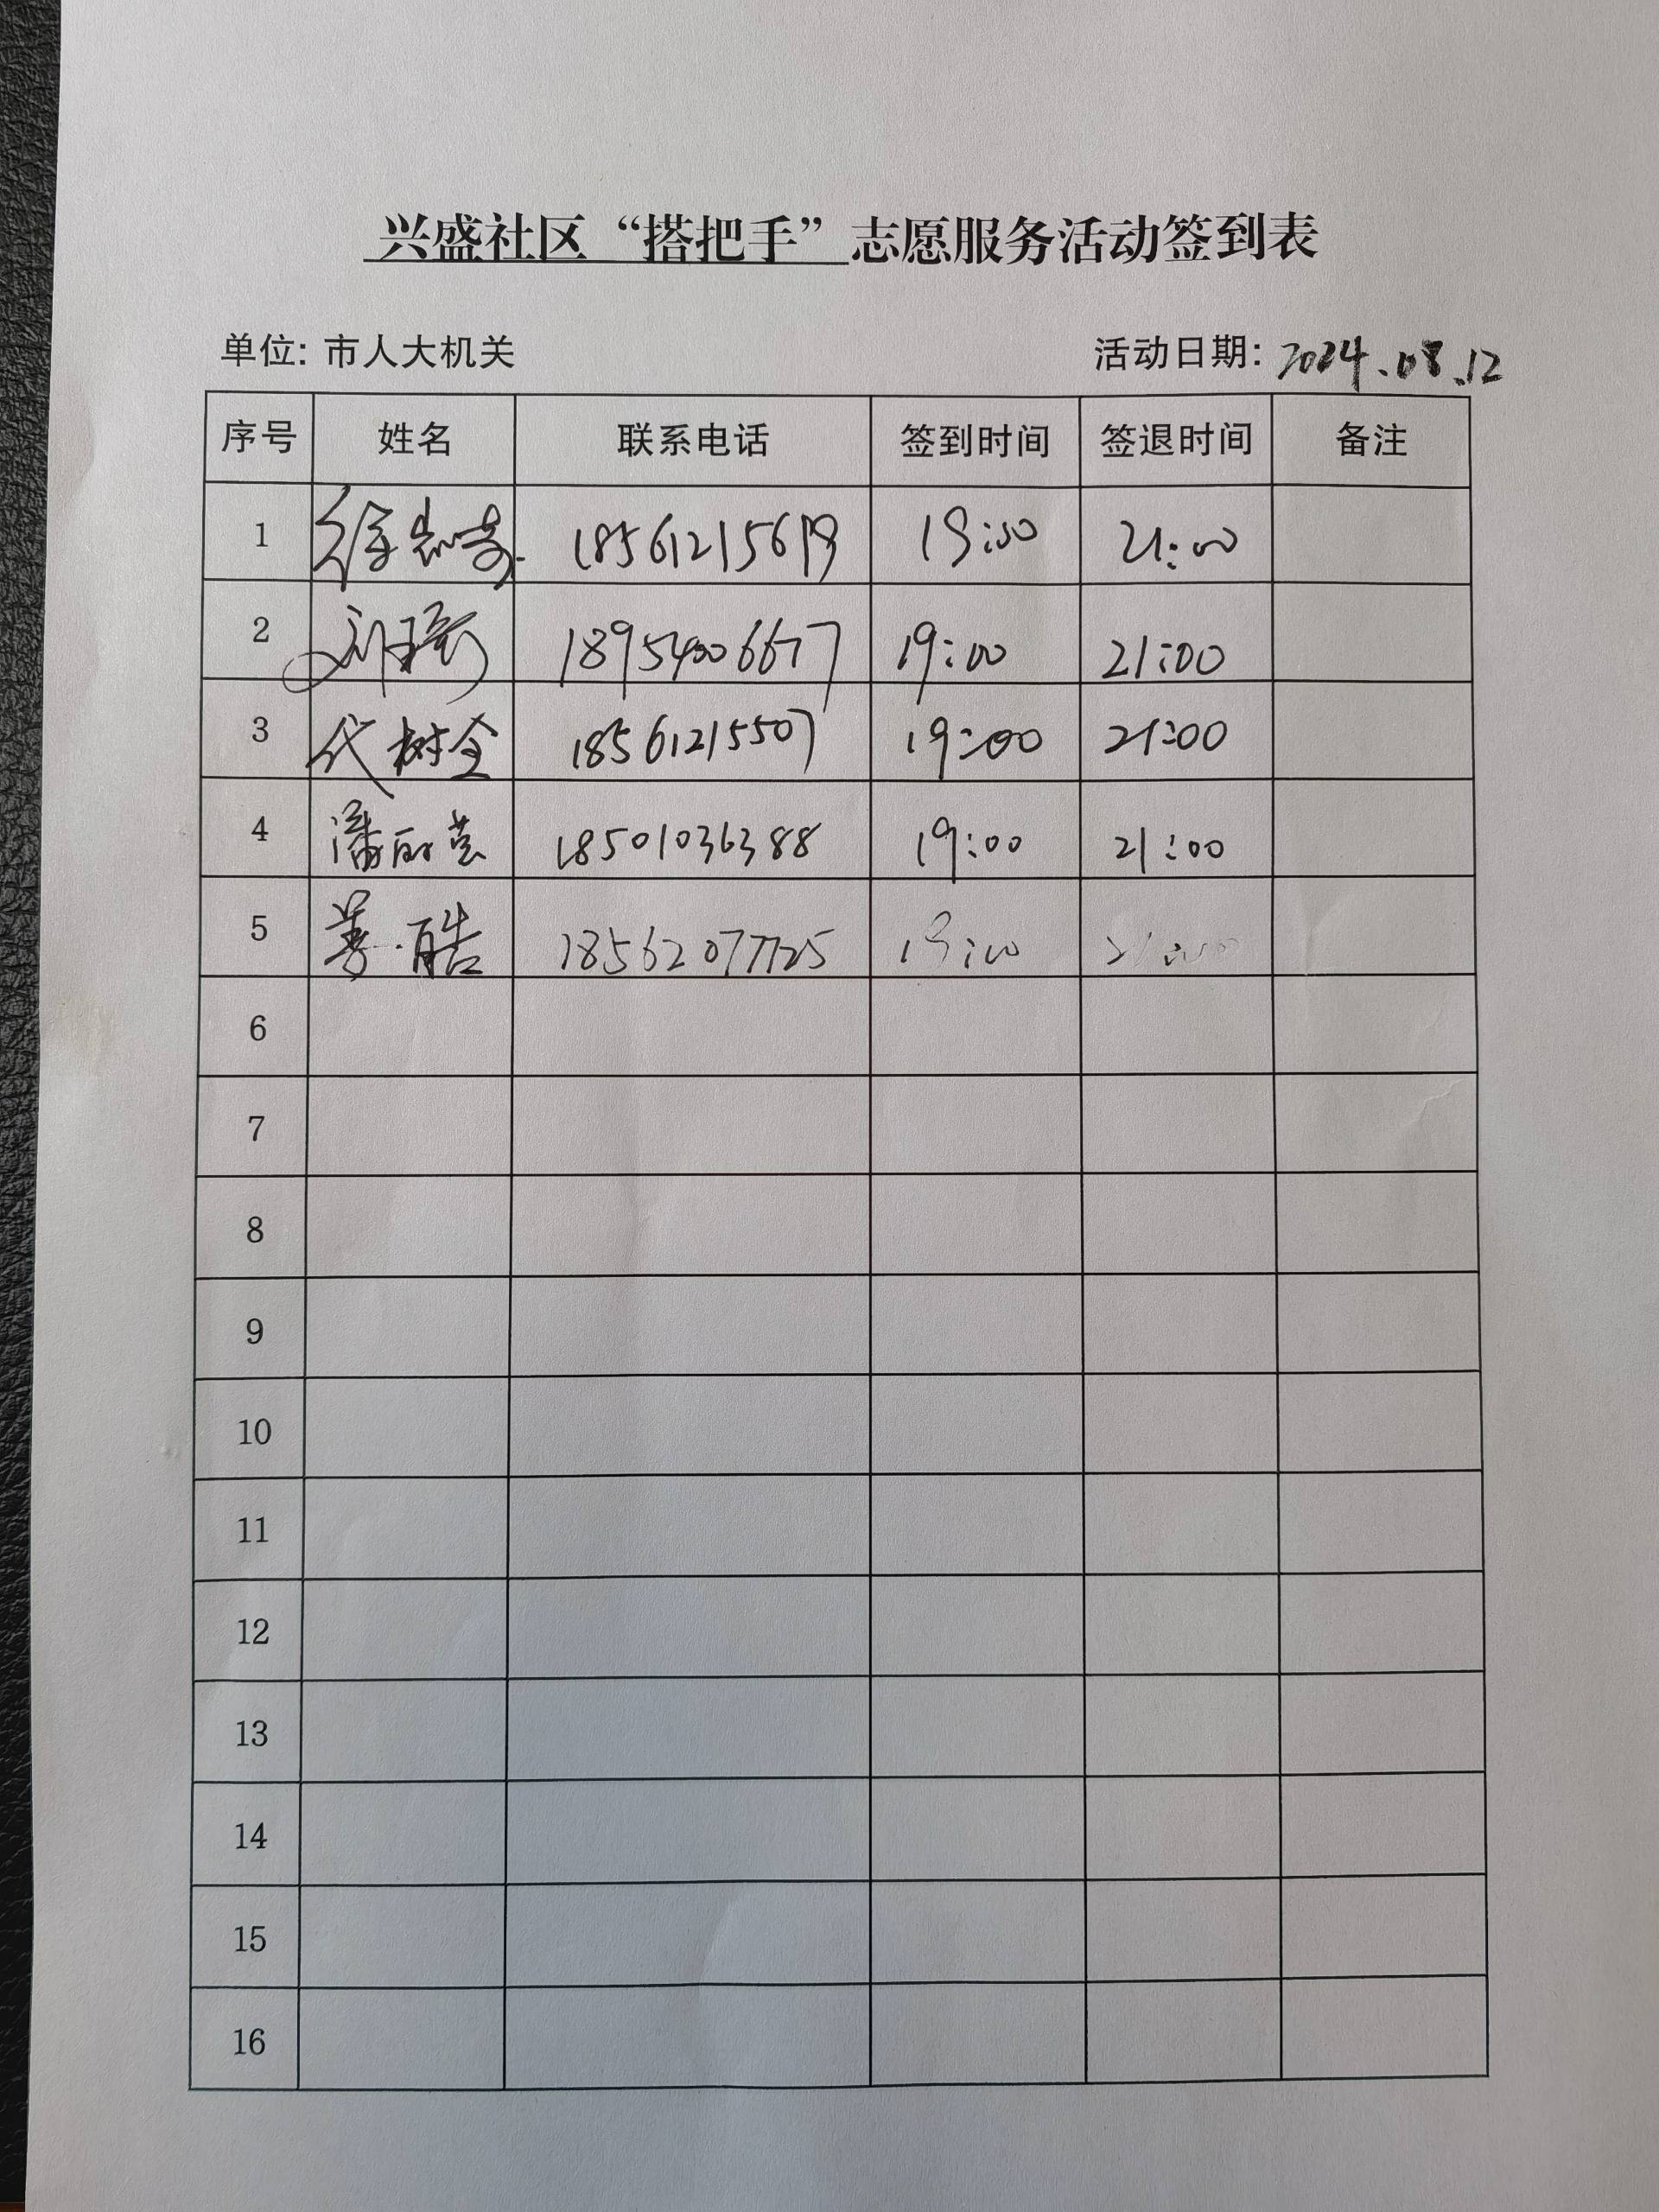 兴盛社区“搭把手”志愿服务活动签到表
单位: 市人大机关 活动日期: 2024.08.12
序号 姓名 联系电话 签到时间 签退时间 备注
1 19:00 21:00
2 刘 18954006677 19:00 21:00
3 代树全 18561215507 19:00 21:00
4 潘丽芸 18501036388 19:00 21:00
5 姜皓 18562077725 19:00 21:00
6
7
8
9
10
11
12
13
14
15
16